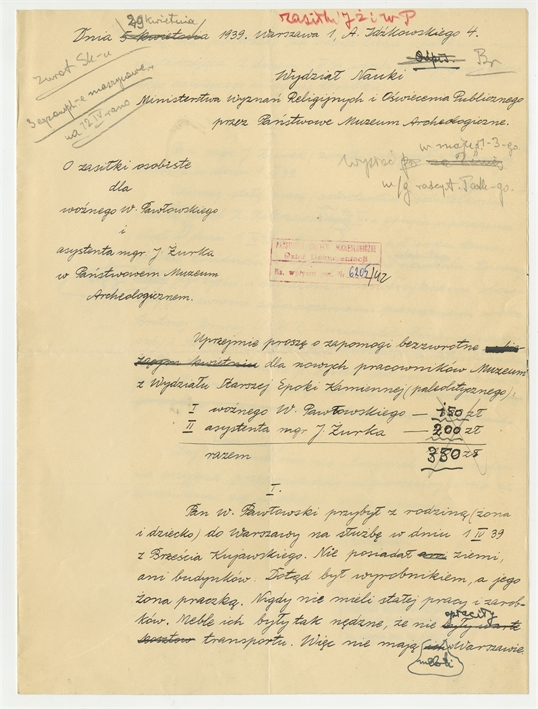 29 kwietnia
zasiłki J Ż i w P
Dnia 5 kwietnia 1939. Warszawa 1, A. Idźkowskiego 4.
zwrot Sk-u
Odpis.
Br
3 egzempl-e maszynowe
na 12 IV rano
Wydział Nauki
Ministerstwa Wyznań Religijnych i Oświecenia Publicznego
przez Państwowe Muzeum Archeologiczne.
w
wysłać
O zasiłki osobiste
dla
woźnego W. Pawłowskiego
i
asystenta mgr. J. Żurka
w Państwowem Muzeum
Archeologicznem.
6202/42
Uprzejmie proszę o zapomogi bezzwrotne
kwietniu dla nowych pracowników Muzeum
z Wydziału Starszej Epoki Kamiennej (paleolitycznego):
I woźnego W. Pawłowskiego — 150 zł
II asystenta mgr. J. Żurka — 200 zł
razem 350 zł
I.
Pan W. Pawłowski przybył z rodziną (żona
i dziecko) do Warszawy na służbę w dniu 1 IV 39
z Brześcia Kujawskiego. Nie posiadał ani ziemi,
ani budynków. Dotąd był wyrobnikiem, a jego
żona praczką. Nigdy nie mieli stałej pracy i zarob-
ków. Meble ich były tak nędzne, że nie były warte opłaciły
kosztów transportu. Więc nie mają w Warszawie
mebli